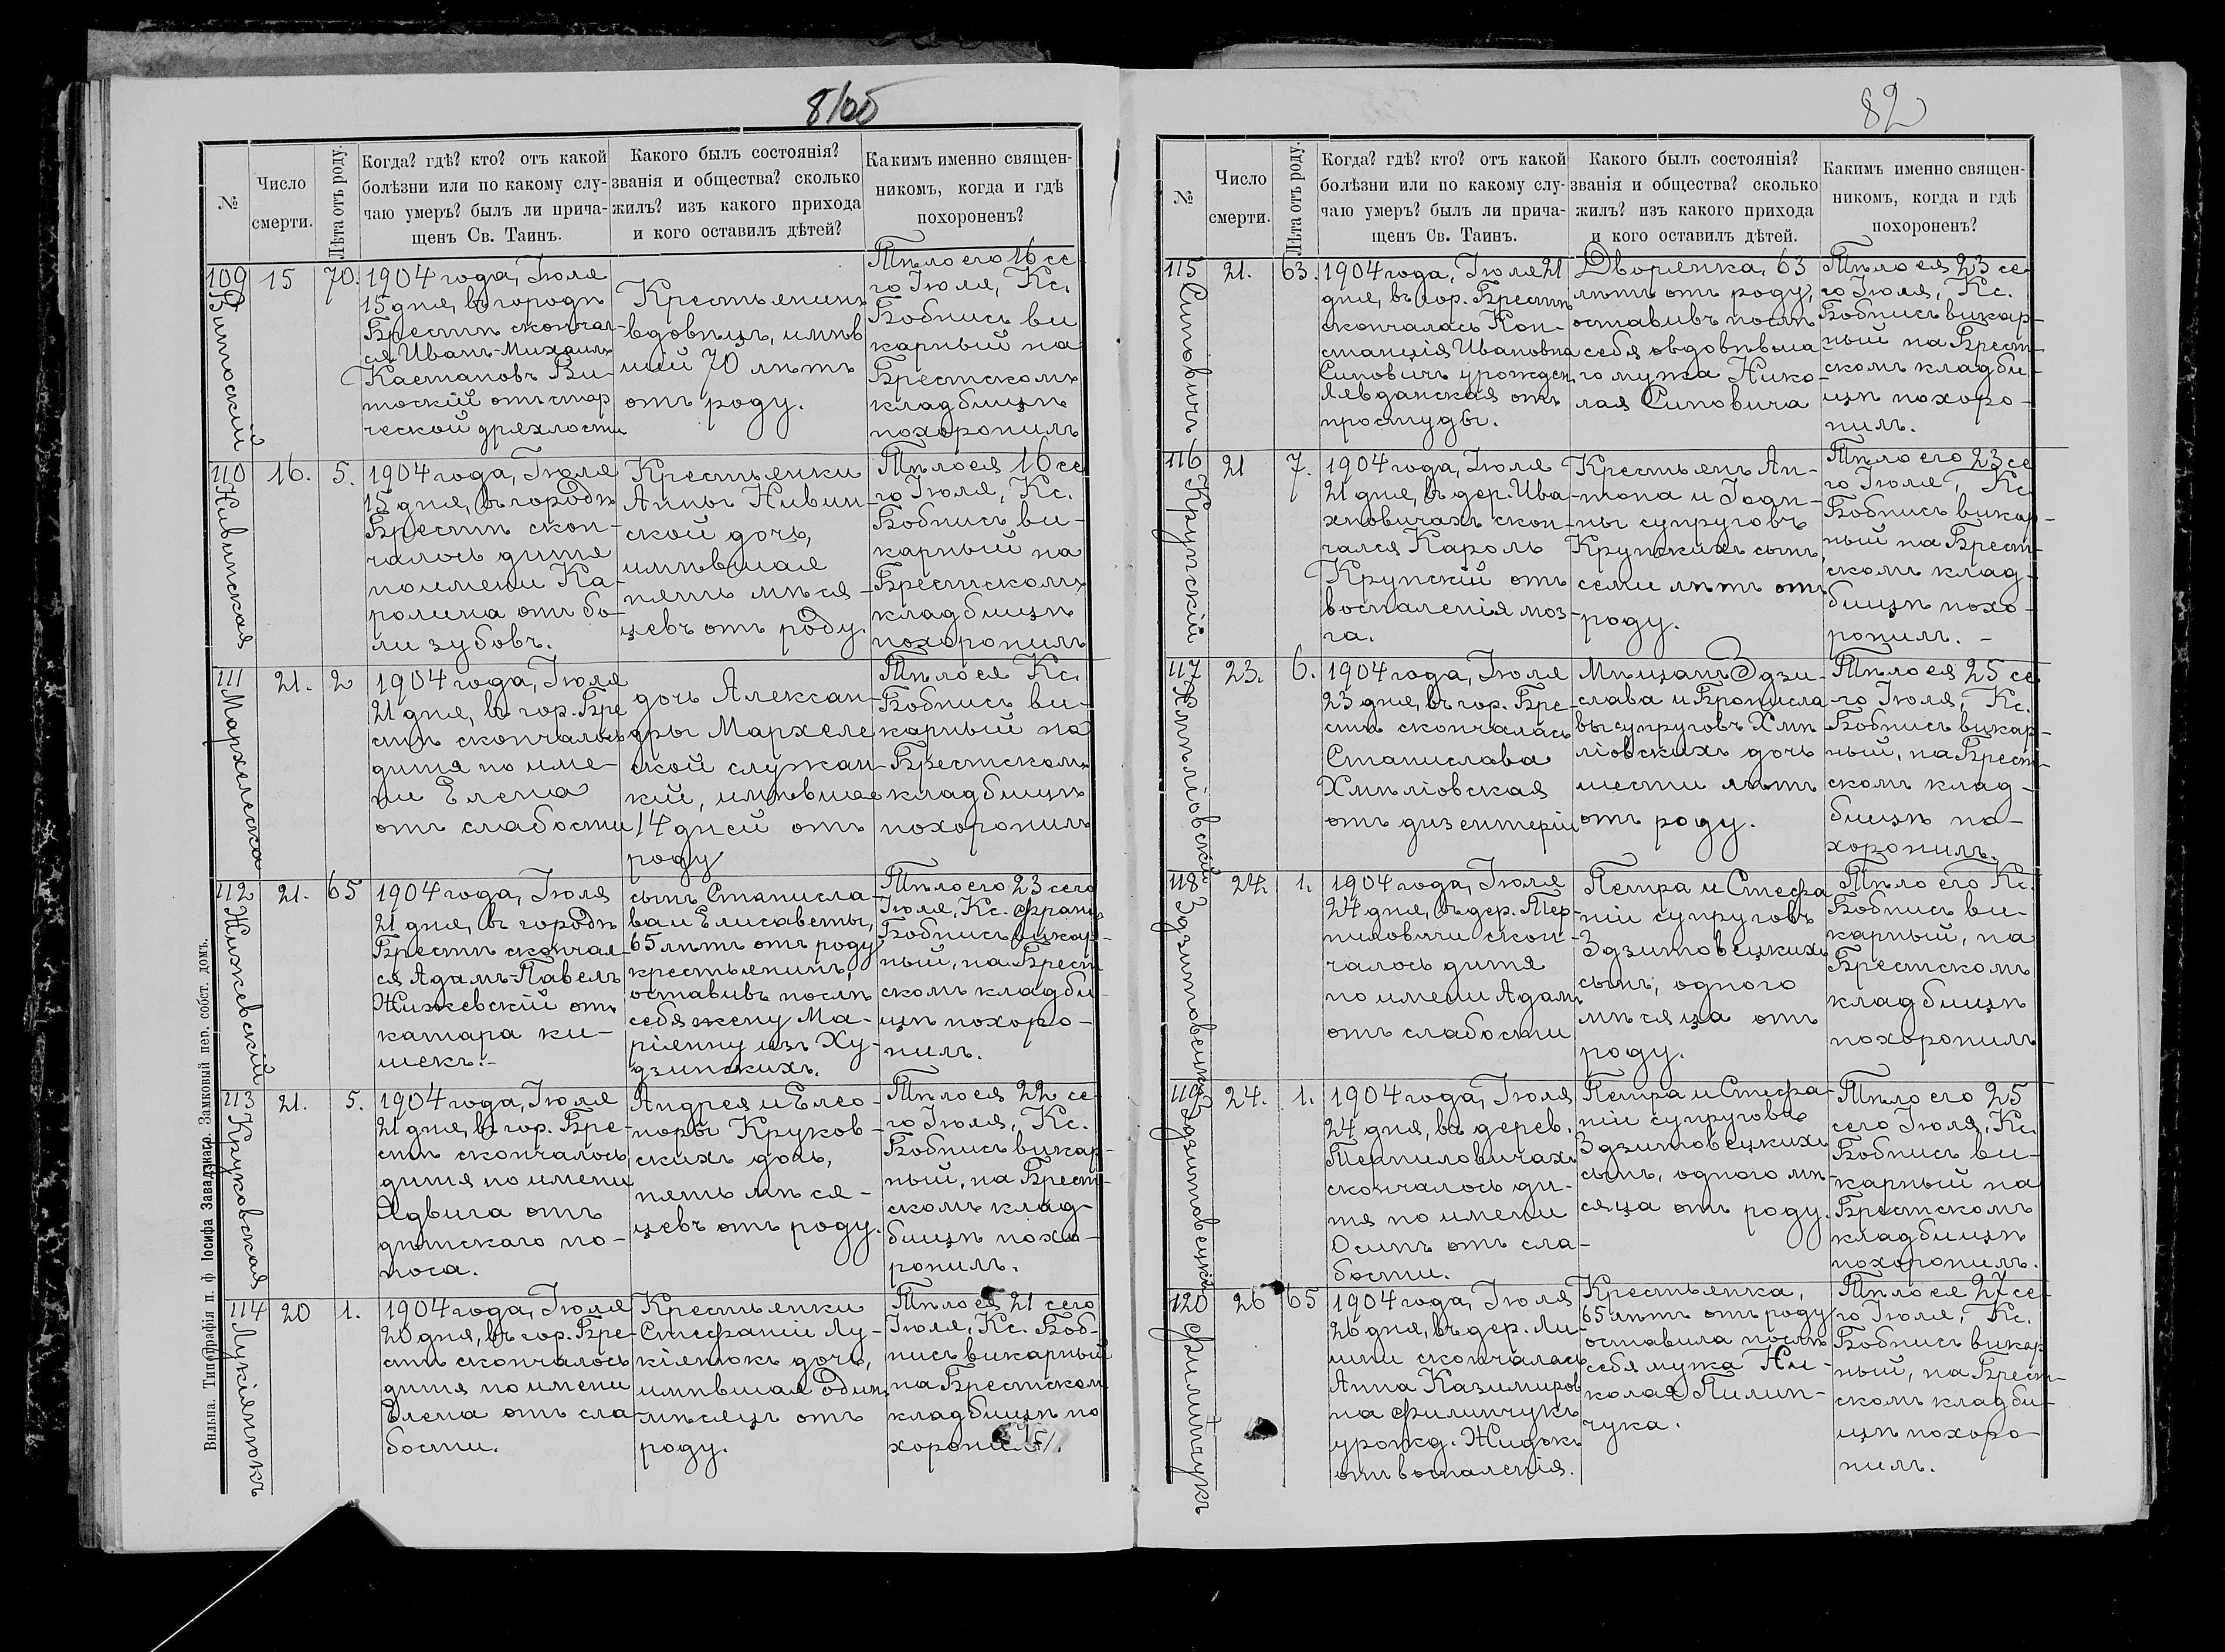 8/05
№
Число
смерти.
Лѣта отъ роду.
Когда? гдѣ? кто? отъ какой
болѣзни или по какому слу-
чаю умеръ? былъ ли прича-
щенъ Св. Таинъ.
Какого былъ состоянія?
званія и общества? сколько
жилъ? изъ какого прихода
и кого оставилъ дѣтей?
Какимъ именно священ-
никомъ, когда и гдѣ
похороненъ?
109
Витоскій
15
70.
1904 года, Іюля
15 дня, въ городѣ
Брестѣ скончал-
ся Иванъ-Михаилъ
Каетановъ Ви-
тоскій отъ стар
ческой дряхлости
Крестьянинъ
вдовецъ, имѣв
шій 70 лѣтъ
отъ роду.
Тѣло его 16 се
го Іюля, Кс.
Бобнисъ ви
карный на
Брестскомъ
кладбищѣ
похоронилъ
110
Нивинская
16.
5.
1904 года, Іюля
15 дня, въ городѣ
Брестѣ скон-
чалось дитя
по имени Ка-
ролина отъ бо-
ли зубовъ.
Крестьянки
Анны Нивин-
ской дочь,
имѣвшая
пять мѣся-
цевъ отъ роду.
Тѣло ея 16 се
го Іюля, Кс.
Бобнисъ ви-
карный на
Брестскомъ
кладбищѣ
похоронилъ
111
Мархелеска
21.
2
1904 года, Іюля
21 дня, въ гор. Бре
стѣ скончалось
дитя по име-
ни Елена
отъ слабости
дочь Алексан-
дры Мархеле
ской служан-
кій, имѣвшая
14 дней отъ
роду
Тѣло ея Кс.
Бобнисъ ви-
карный на
Брестскомъ
кладбищѣ
похоронилъ
112
Нижевскій
21.
65
1904 года, Іюля
21 дня, въ городѣ
Брестѣ скончал-
ся Адамъ-Павелъ
Нижевскій отъ
катара ки-
шекъ.-
сынъ Станисла-
ва и Елисаветы,
65 лѣтъ отъ роду
крестьянинъ,
оставивъ послѣ
себя жену Ма-
ріанну изъ Ху-
дзинскихъ.
Тѣло его 23 сего
Іюля, Кс. Франц
Бобнисъ викар-
ный, на Брест
скомъ кладби-
щѣ похоро-
нилъ.
113
Круковская
21.
5.
1904 года, Іюля
21 дня, въ гор. Бре-
стѣ скончалось
дитя по имени
Ядвига отъ
дѣтскаго по-
носа.
Андрея и Елео-
норы Круков-
скихъ дочь,
пять мѣся-
цевъ отъ роду.
Тѣло ея 22 се-
го Іюля, Кс.
Бобнисъ викар-
ный, на Брест-
скомъ клад-
бищѣ похо-
ронилъ.
114
Лукіянюкъ
20
1.
1904 года, Іюля
20 дня, въ гор. Бре-
стѣ скончалось
дитя по имени
Елена отъ сла
бости.
Крестьянки
Стефаніи Лу-
кіянюкъ дочь,
имѣвшая одинъ
мѣсяцъ отъ
роду.
Тѣло ея 21 сего
Іюля, Кс. Боб-
нисъ викарный
на Брестском
кладбищѣ по
хоронилъ.
Вильна. Типографія п. ф. Іосифа Завадзкаго. Замковый пер. собст. домъ.
82
№
Число
смерти.
Лѣта отъ роду.
Когда? гдѣ? кто? отъ какой
болѣзни или по какому слу-
чаю умеръ? былъ ли прича-
щенъ Св. Таинъ.
Какого былъ состоянія?
званія и общества? сколько
жилъ? изъ какого прихода
и кого оставилъ дѣтей.
Какимъ именно священ-
никомъ, когда и гдѣ
похороненъ?
115
Синовичъ
21.
63.
1904 года, Іюля 21
дня, въ гор. Брестѣ
скончалась Кон-
станція Ивановна
Синовичъ урожден.
Левданская отъ
простуды.
Дворянка, 63
лѣтъ отъ роду,
оставивъ послѣ
себя овдовѣвша
го мужа Нико-
лая Синовича
Тѣло ея 23 се-
го Іюля, Кс.
Бобнисъ викар-
ный на Брест-
скомъ кладби-
щѣ похоро-
нилъ.
116
Крупскій
21
7.
1904 года, Іюля
21 дня, въ дер. Ива
хновичахъ скон-
чался Кароль
Крупскій отъ
воспаленія моз-
га.
Крестьянъ Ан-
тона и Годи-
ны супруговъ
Крупскихъ сынъ,
семи лѣтъ отъ
роду.
Тѣло его 23 се
го Іюля, Кс.
Бобнисъ викар-
ный на Брест-
скомъ клад-
бищѣ похо-
ронилъ. -
117
Хмѣліовскій
23.
6.
1904 года, Іюля
23 дня, въ гор. Бре-
стѣ скончалась
Станислава
Хмѣліовская
отъ дизентеріи
Мѣщанъ Здзи-
слава и Брониcла
вы супруговъ Хмѣ
ліовскихъ дочь
шести лѣтъ
отъ роду.
Тѣло ея 25 се
го Іюля, Кс.
Бобнисъ викар-
ный, на Брест-
скомъ клад-
бищѣ по-
хоронилъ.
118
24.
1.
1904 года, Іюля
24 дня, въ дер. Тер-
пиловичи скон-
чалось дитя
по имени Адамъ
отъ слабости
Петра и Стефа
ніи супруговъ
Здзитовецкихъ
сынъ, одного
мѣсяца отъ
роду.
Тѣло его Кс.
Бобнисъ ви-
карный, на
Брестскомъ
кладбищѣ
похоронилъ
119
24.
1.
1904 года, Іюля
24 дня, въ дерев.
Терпиловичахъ
скончалось ди-
тя по имени
Осипъ отъ сла-
бости.
Петра и Стефа-
ніи супруговъ
Здзитовецкихъ
сынъ, одного мѣ-
сяца отъ роду.
Тѣло его 25
сего Іюля, Кс.
Бобнисъ ви-
карный на
Брестскомъ
кладбищѣ
похоронилъ.
120
Филипчукъ
26
65
1904 года, Іюля
26 дня, въ дер. Ли-
шти скончалась
Анна Казимиров
на Филипчукъ
урожд. Жидокъ
отъ воспаленія.
Крестьянка,
65 лѣтъ отъ роду
оставила послѣ
себя мужа Ни-
колая Пилип-
чука.
Тѣло ея 27 се-
го Іюля, Кс.
Бобнисъ викар
ный, на Брест-
скомъ кладби-
щѣ похоро-
нилъ.